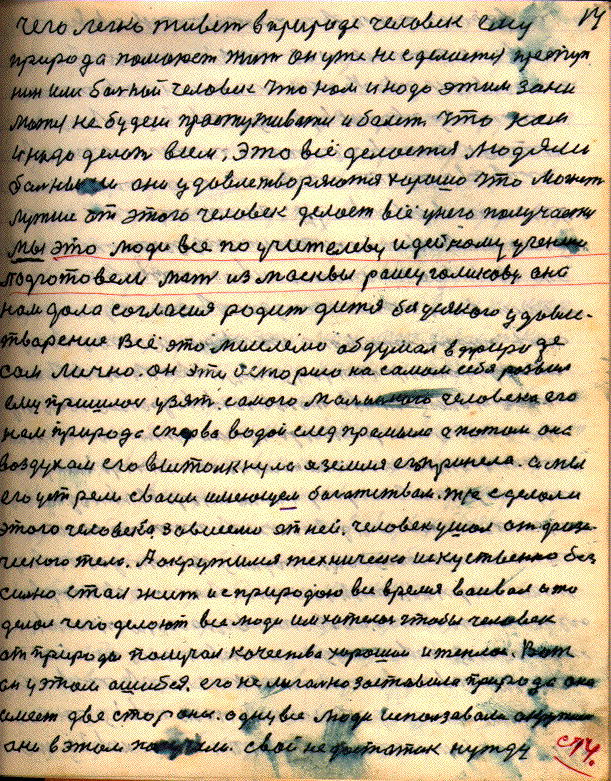 14
чего легко живет в природе человек ему
природа поможет жит он уже не сделается преступ
ник или болной человек что нам и надо этим зани
матся не будеш простуживатся и болет. что нам
и надо делат всем. Это всё делается людями
болными они удовлетворяются хорошо что может
лутше от этого человек делает всё унего получается
мы это люди все по учителеву идейному учению
подготовели мат из масквы раису голикову она
нам дала согласия родит дитя без всякого удовле-
творение Всё это мыслемо обдумал в природе
сам лично. он эту историю на самом себя развил
ему пришлос узят самого маленкого человека его
нам природа сперва водой след промыла а потом она
воздухам его вытолкнула а земля его принела. а мы
его устрели сваим имеющем богатствам. мы сделали
этого человека зовисемо от ней. человек ушол от физи
ческого тело. А окружился техническо искуственно без
силно стал жит и с природою все время ваивал а то
делал чего делают все люди им хателос чтобы человек
от природы получал качества хорошии и теплое. Вот
он у этом ошибся. его не легално заставила природа она
имеет две стороны. одну все люди исползавали
они в этом получили. свой недостаток нужду
ст. 14.